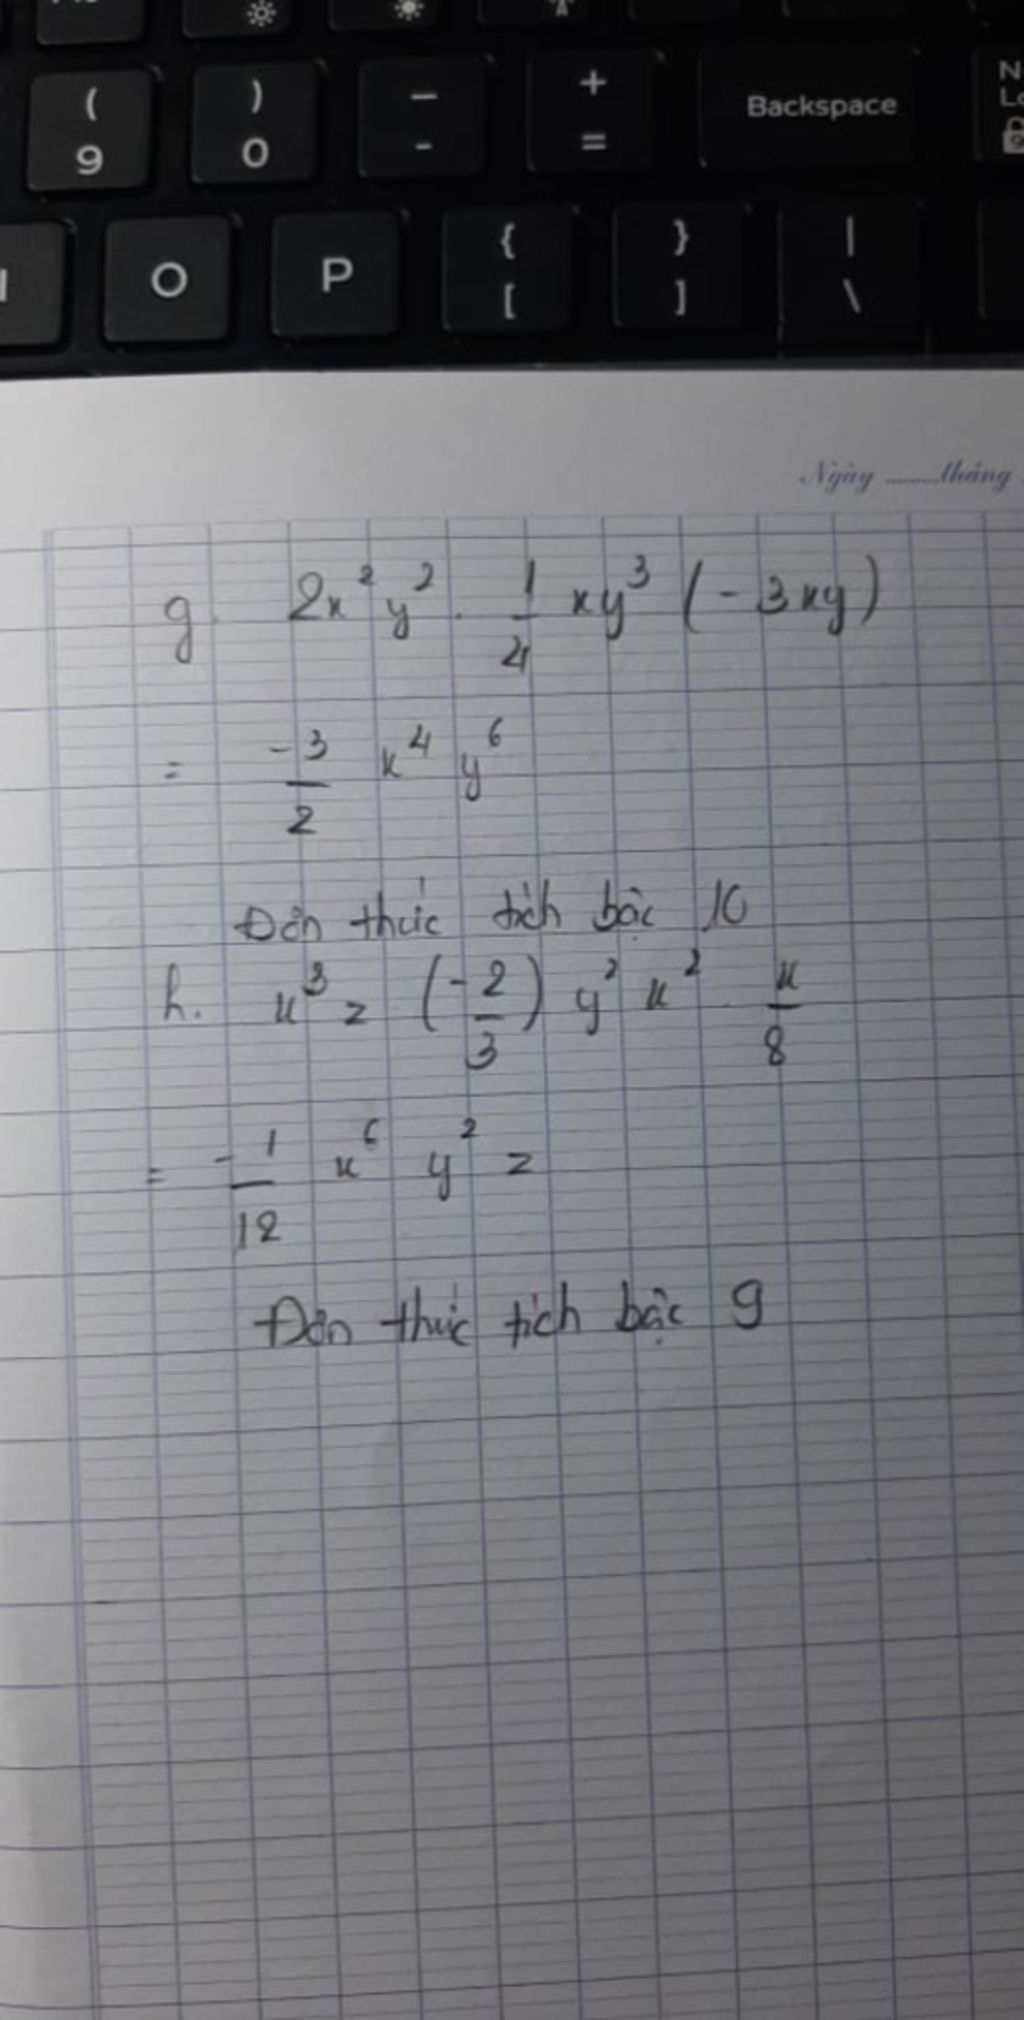 ( ) — + Backspace N
9 0 - = Lo
O P { } |
[ ] \
Ngày ........tháng
g. 2x² y² . 1/4 xy³ (-3xy)
= -3/2 x⁴ y⁶
Đơn thức tích bậc 10
h. x³ z (-2/3) y² x² . x/8
= -1/12 x⁶ y² z
Đơn thức tích bậc 9